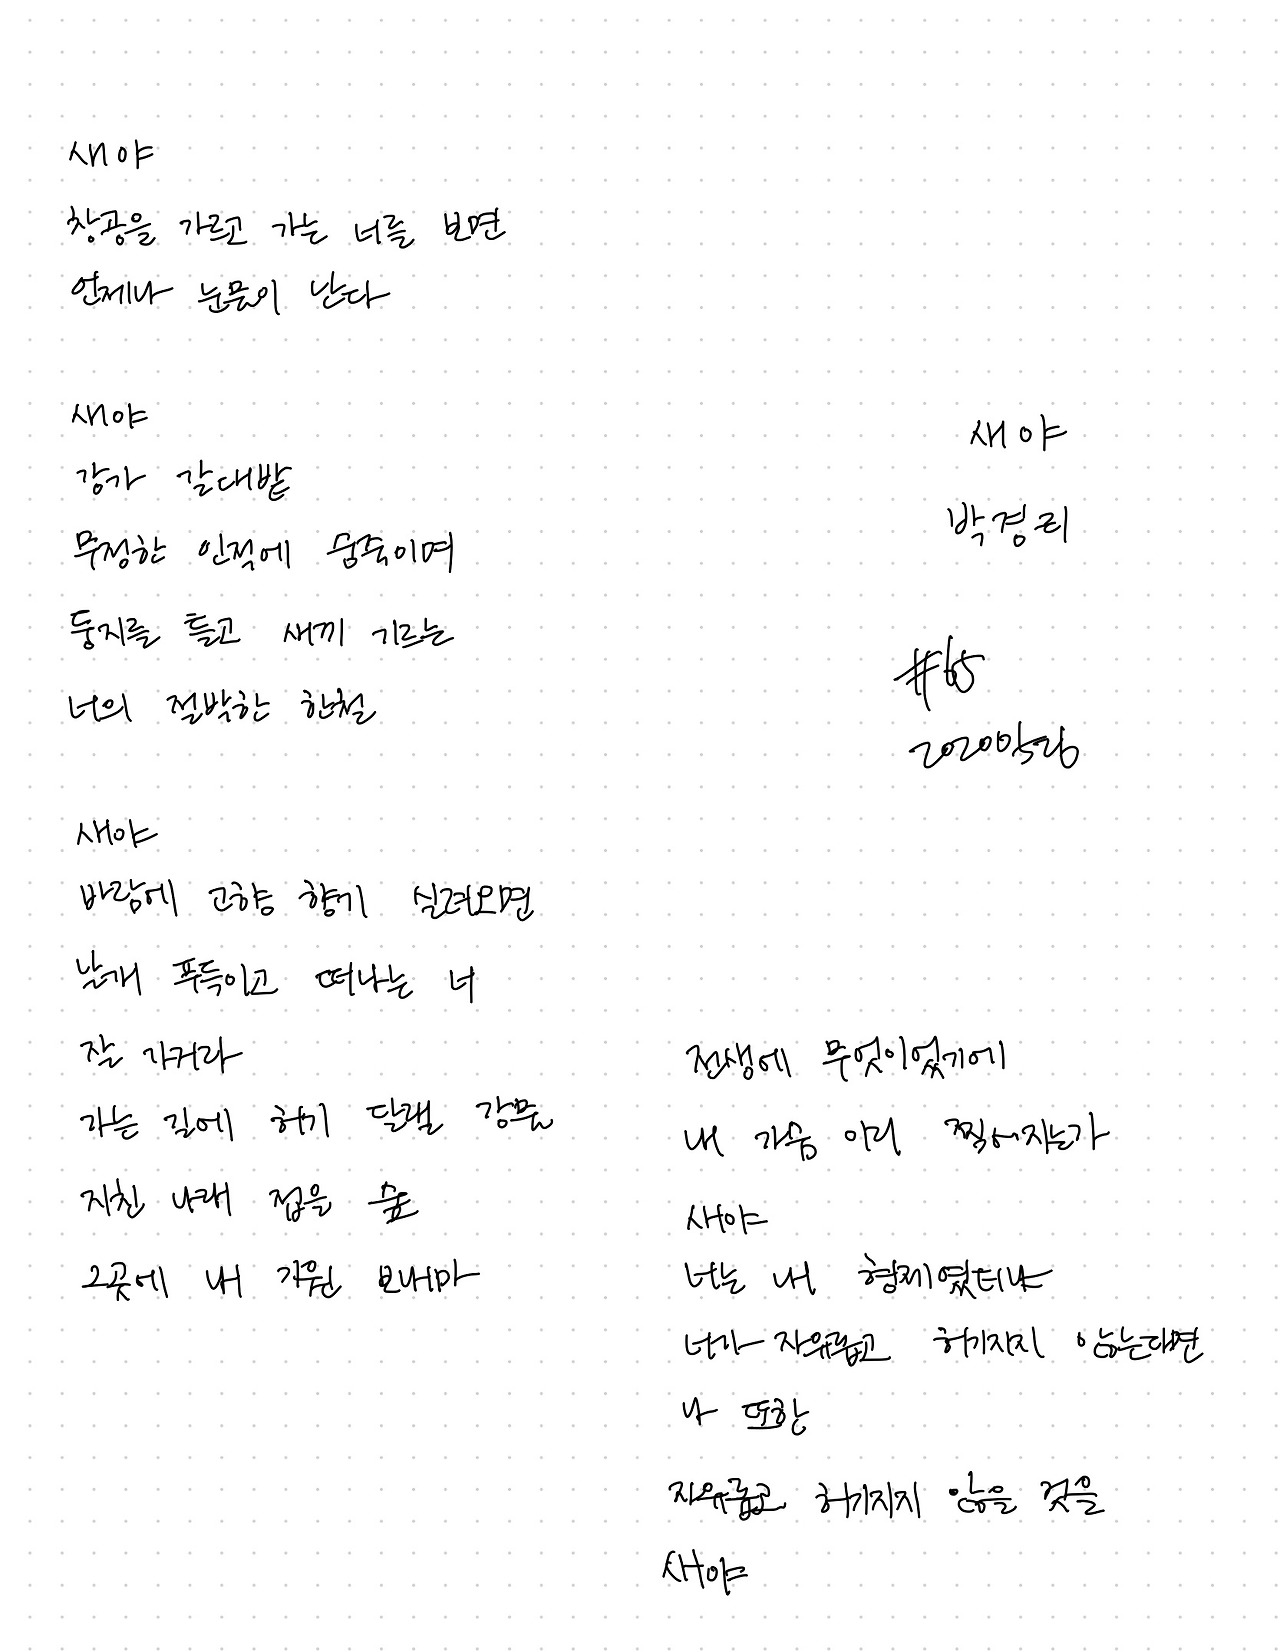 새야
창공을 가르고 가는 너를 보면
언제나 눈물이 난다
새야
강가 갈대밭
무정한 인적에 숨죽이며
둥지를 틀고 새끼 기르는
너의 절박한 한철
새야
바람에 고향 향기 실려오면
날개 푸득이고 떠나는 너
잘 가거라
가는 길에 허기 달랠 강물
지친 나래 접을 숲
그곳에 내 기원 보내마
새야
박경리
#65
전생에 무엇이었기에
내 가슴 이리 찢어지는가
새야
너는 내 형제였더냐
너가 자유롭고 허기지지 않는다면
나 또한
자유롭고 허기지지 않을 것을
새야